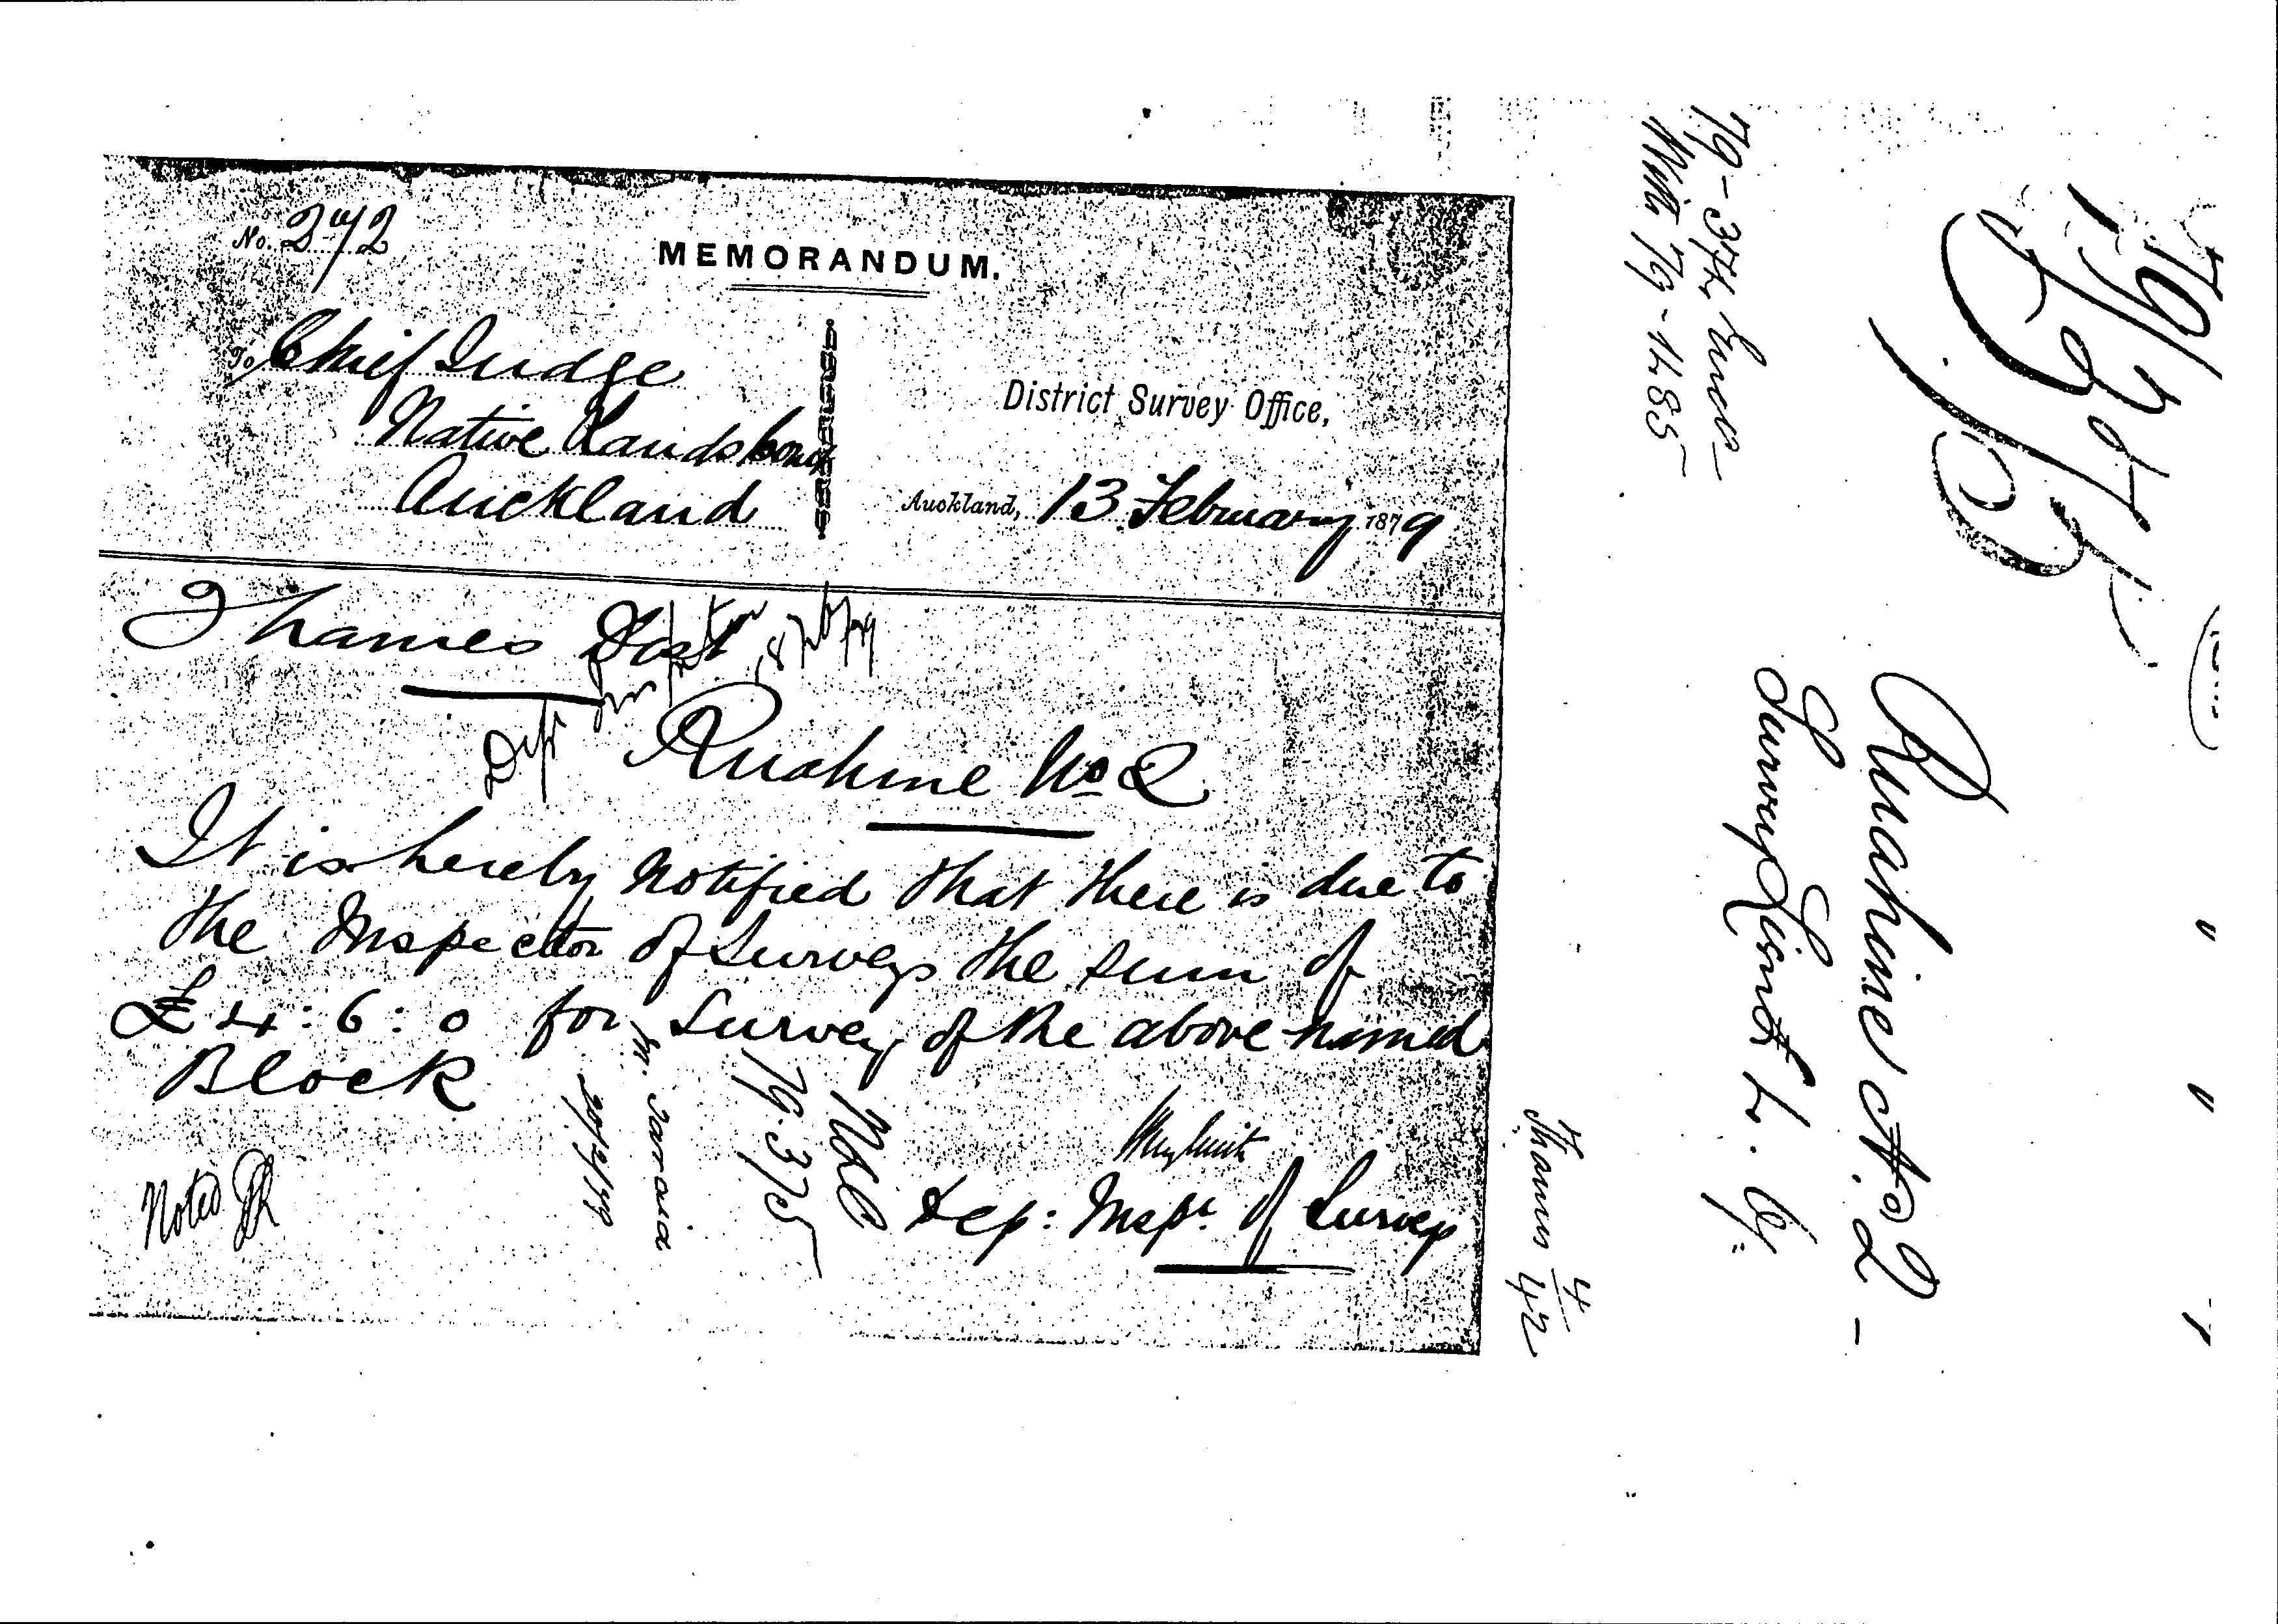 No. 272
MEMORANDUM.
To Chief Judge
Native Lands Court
Auckland
District Survey Office,
Auckland, 13 February 1879
Thames Dist
Ruahine No 2
It is hereby notified that there is due to
the Inspector of Surveys the sum of
£4:6:0 for Survey of the above named
Block
Dep: Inspr. of Surveys
Noted
79.375
NLC
Thames 4/42
79-374
With 79-1485
79/375
Ruahine No 2 -
Survey Lien